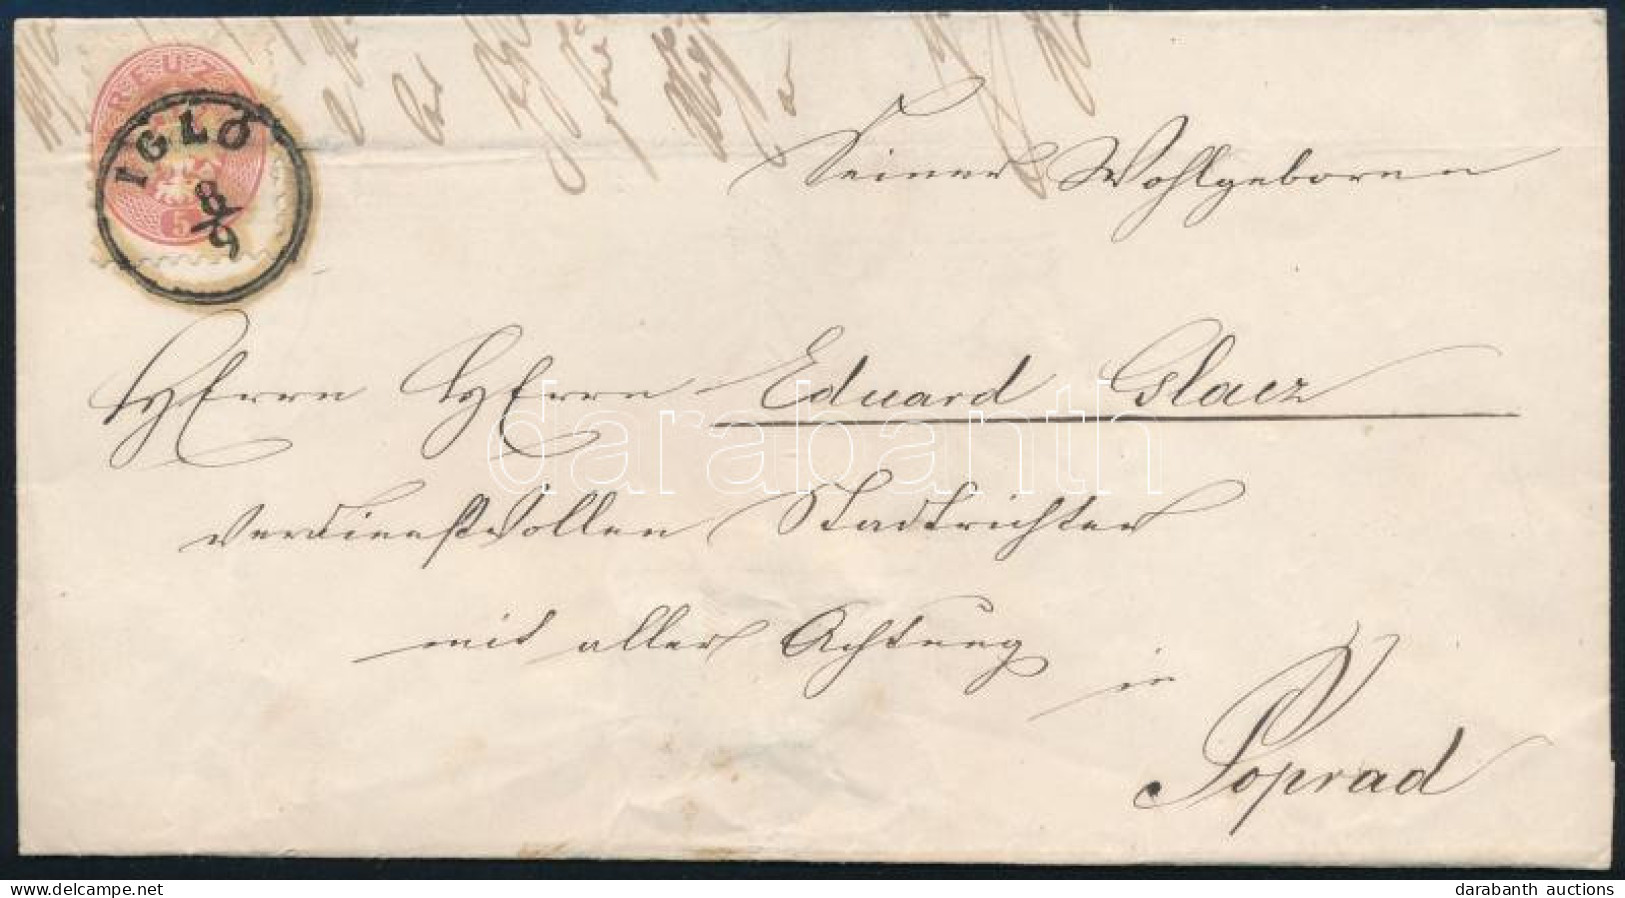 KREUZ
5
IGLÓ
8/9
Seiner Wohlgeboren
Herrn Herrn Eduard Glacz
verdienstvollen Stadtrichter
mit aller Achtung
in
Poprad
darabanth
delcampe.net
darabanth auctions